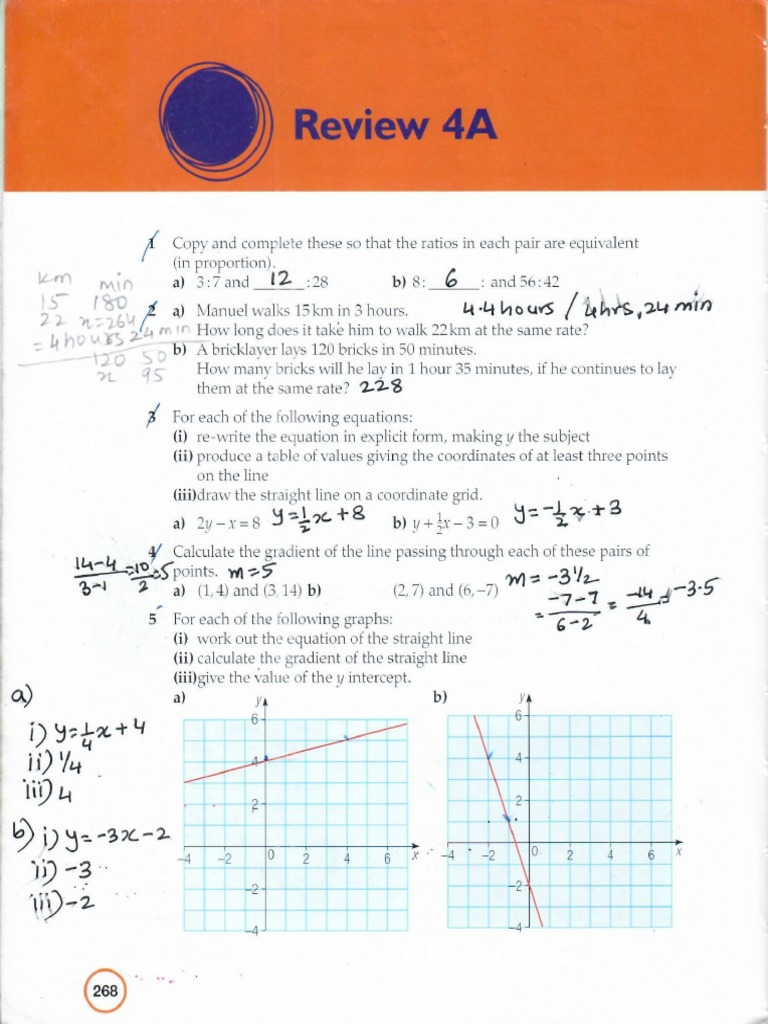 Review 4A
1 Copy and complete these so that the ratios in each pair are equivalent
(in proportion).
a) 3:7 and 12 :28 b) 8: 6 : and 56:42
km min
15 180
22 x=264
= 4 hours 24 min
120 50
x 95
2 a) Manuel walks 15 km in 3 hours. 4.4 hours / 4hrs, 24 min
How long does it take him to walk 22 km at the same rate?
b) A bricklayer lays 120 bricks in 50 minutes.
How many bricks will he lay in 1 hour 35 minutes, if he continues to lay
them at the same rate? 228
3 For each of the following equations:
(i) re-write the equation in explicit form, making y the subject
(ii) produce a table of values giving the coordinates of at least three points
on the line
(iii) draw the straight line on a coordinate grid.
a) 2y – x = 8 y = 1/2 x + 8 b) y + 1/2 x – 3 = 0 y = -1/2 x + 3
4 Calculate the gradient of the line passing through each of these pairs of
points. m = 5 m = -3 1/2
14-4/3-1 = 10/2 = 5
a) (1, 4) and (3, 14) b) (2, 7) and (6, –7)
= -7-7/6-2 = -14/4 = -3.5
5 For each of the following graphs:
(i) work out the equation of the straight line
(ii) calculate the gradient of the straight line
(iii) give the value of the y intercept.
a) b)
a)
i) y = 1/4 x + 4
ii) 1/4
iii) 4
b) i) y = -3x - 2
ii) -3
iii) -2
y
6
4
2
–4 –2 0 2 4 6 x
–2
–4
y
6
4
2
–4 –2 0 2 4 6 x
–2
–4
268